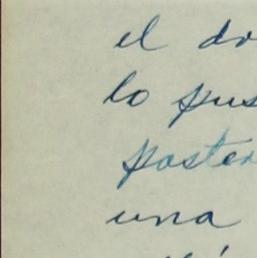 el do
lo pus
poster
una